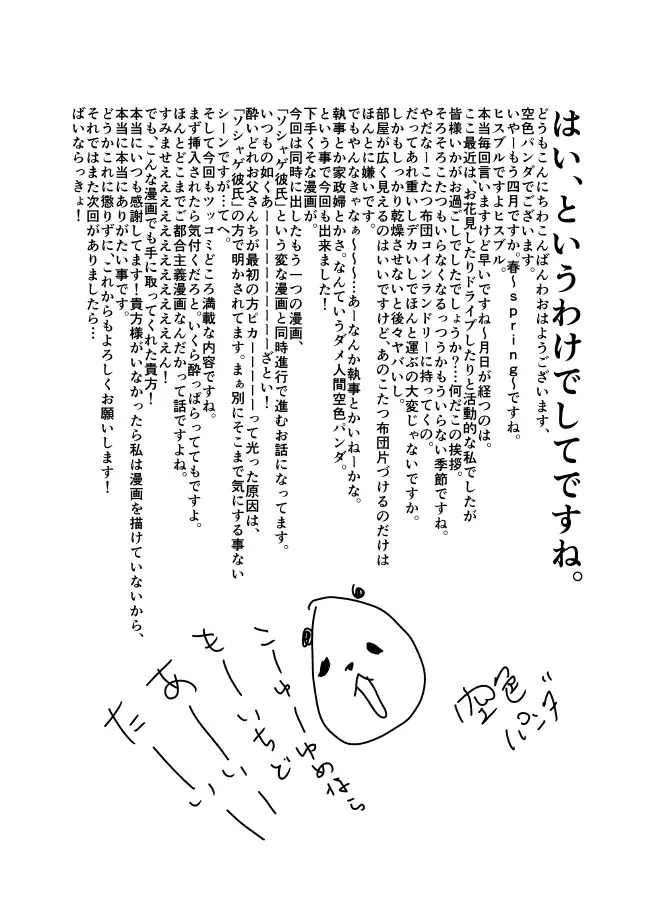 はい、というわけでしてですね。
どうもこんにちわこんばんわおはようございます、
空色パンダでございます。
いやーもう四月ですか。春～spring～ですね。
ヒスブルですよヒスブル。
本当毎回言いますけど早いですね～月日が経つのは。
ここ最近は、お花見したりドライブしたりと活動的な私でしたが
皆様いかがお過ごしでしたでしょうか？…何だこの挨拶。
そろそろこたつもいらなくなるっつうかもういらない季節ですね。
やだなーこたつ布団コインランドリーに持ってくの。
だってあれ重いしデカいしでほんと運ぶの大変じゃないですか。
しかもしっかり乾燥させないと後々ヤバいし。
ほんとに嫌いです。
部屋が広く見えるのはいいですけど、あのこたつ布団片づけるのだけは
でもやんなきゃなぁ～～～…あーなんか執事とかいねーかな。
執事とか家政婦とかさ。なんていうダメ人間空色パンダ。
という事で今回も出来ました！
下手くそな漫画が。
今回は同時に出したもう一つの漫画、
「ソシャゲ彼氏」という変な漫画と同時進行で進むお話になってます。
いつもの如くあーーーーーーーーざとい！
酔いどれお父さんちが最初の方ピカーーーーーって光った原因は、
「ソシャゲ彼氏」の方で明かされてます。まぁ別にそこまで気にする事ない
シーンですが…てへ。
そして今回もツッコミどころ満載な内容ですね。
まず挿入されたら気付くだろと。いくら酔っぱらっててもですよ。
ほんとどこまでご都合主義漫画なんだかって話ですよね。
すみませええええええええええん！
でも、こんな漫画でも手に取ってくれた貴方！
本当にいつも感謝してます！貴方様がいなかったら私は漫画を描けていないから、
本当に本当にありがたい事です。
どうかこれに懲りずに、これからもよろしくお願いします！
それではまた次回がありましたら…
ばいならっきょ！
空色パンダ
こーゆーゆめなら
もーいちど
あーいー
たーいー